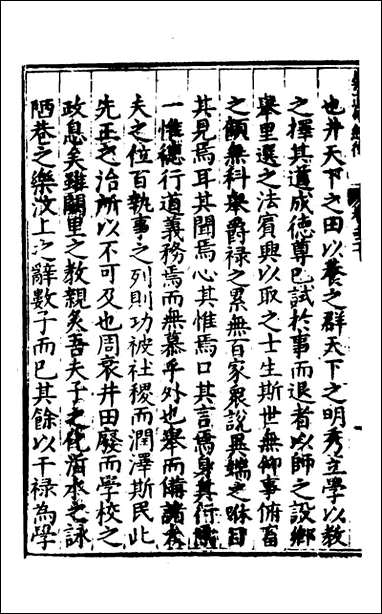 也井天下之田以養之群天下之明秀立學以教
之擇其道成德尊已試於事而退者以師之設鄉
舉里選之法賓興以取之士生斯世無仰事俯畜
之顧無科舉爵禄之累無百家衆說異端之咻目
其見焉耳其聞焉心其惟焉口其言焉身其行焉
一惟德行道義務焉而無慕乎外也舉而備諸大
夫之位百執事之列則功被社稷而潤澤斯民此
先王之治所以不可及也周衰井田廢而學校之
政息矣雖闕里之教親炙吾夫子之化沂水之詠
陋巷之樂汶上之辭數子而已其餘以干禄為學